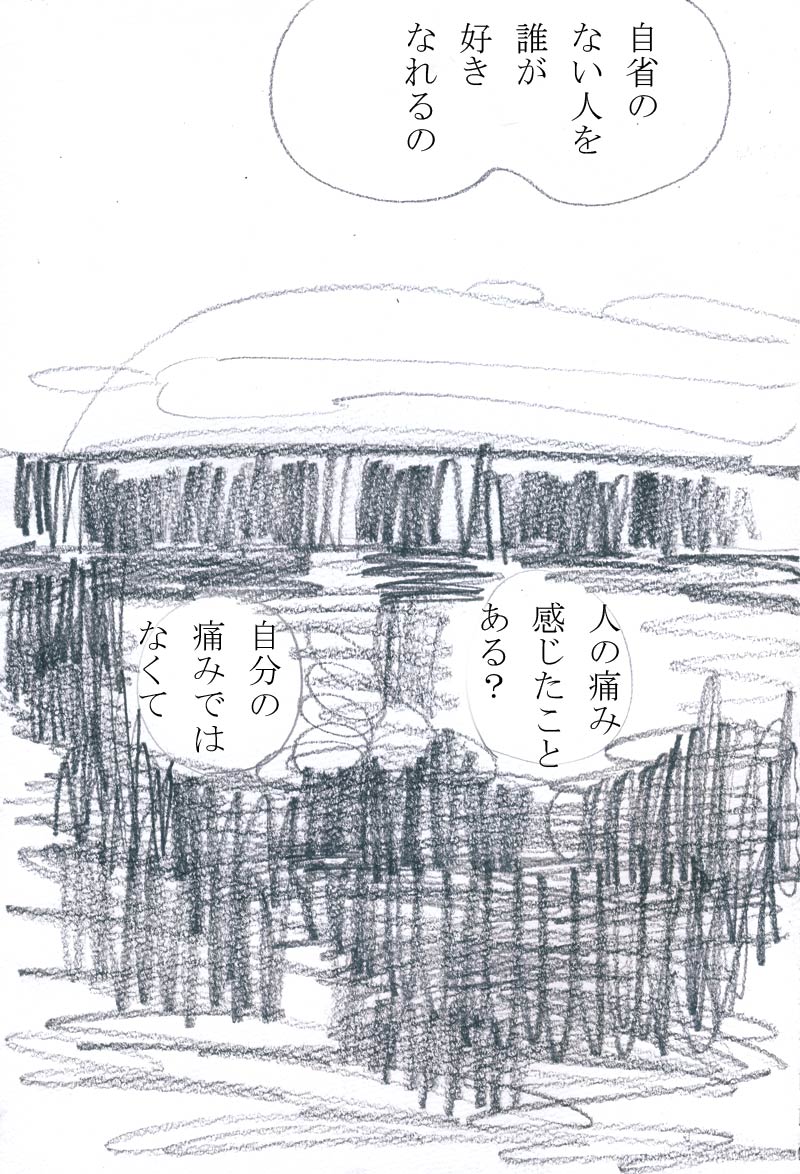 自省の
ない人を
誰が
好き
なれるの
人の痛み
感じたこと
ある?
自分の
痛みでは
なくて